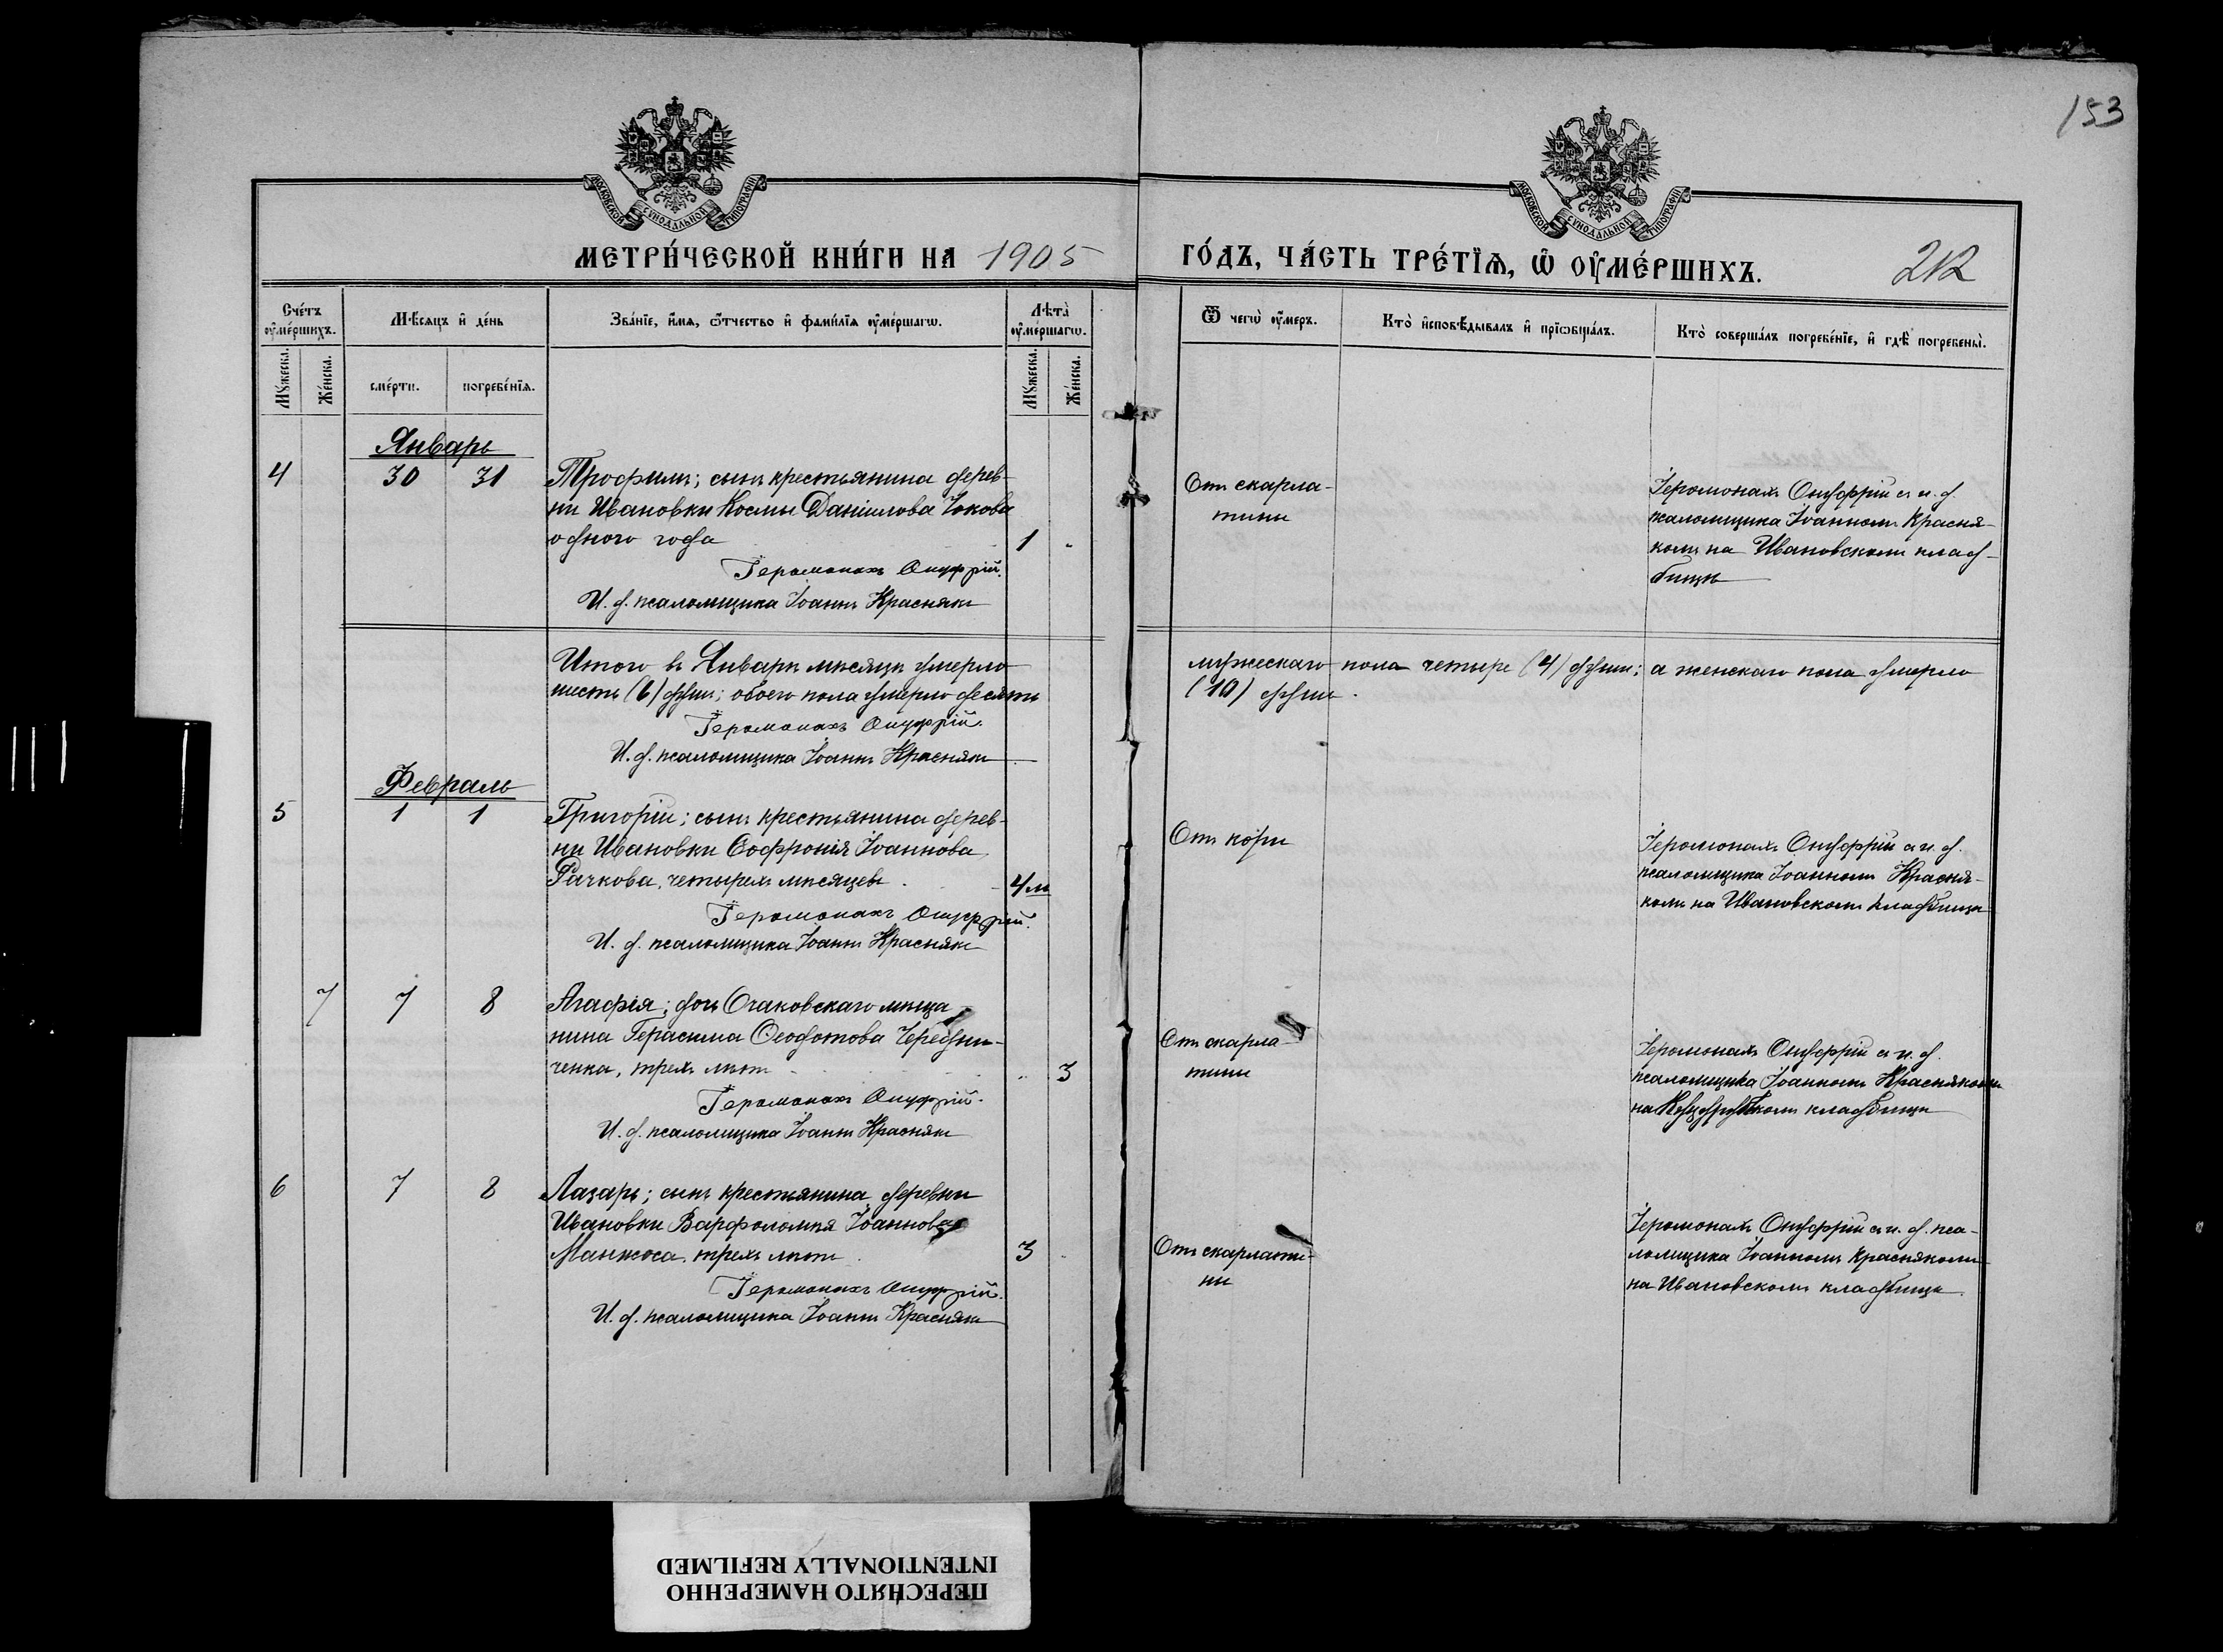 153
МОСКОВСКОЙ СѴНОДАЛЬНОЙ ТИПОГРАФІИ
МОСКОВСКОЙ СѴНОДАЛЬНОЙ ТИПОГРАФІИ
МЕТРИ́ЧЕСКОЙ КНИ́ГИ НА 1905
ГО́ДЪ, ЧА́СТЬ ТРЕ́ТЇѦ, Ѿ ОУ҆МЕ́РШИХЪ.
212
Сче́тъ оу҆ме́ршихъ.
Мѣ́сяцъ и҆ де́нь
Зва́нїе, и҆́мя, ѻ҆́тчество и҆ фами́лїя оу҆ме́ршагѡ.
Лѣта̀ оу҆ме́ршагѡ.
Ѿ чегѡ̀ оу҆́меръ.
Кто̀ и҆сповѣ́дывалъ и҆ прїѡбща́лъ.
Кто̀ соверша́лъ погребе́нїе, и҆ гдѣ̀ погребены̀.
Мꙋ́жеска.
Же́нска.
сме́рти.
погребе́нїя.
Мꙋ́жеска.
Же́нска.
Январь
4 30 31 Трофимъ; сынъ крестьянина дерев-
ни Ивановки Космы Даніилова Чокова
одного года 1
Іеромонахъ Онуфрій.
И. д. псаломщика Іоаннъ Краснякъ
Отъ скарла-
тины
Іеромонахъ Онуфрій съ и. д.
псаломщика Іоанномъ Красня-
комъ на Ивановскомъ клад-
бищѣ
Итого въ Январѣ мѣсяцѣ умерло
мужескаго пола четыре (4) души; а женскаго пола умерло
шесть (6) душъ; обоего пола умерло десять
(10) душъ.
Іеромонахъ Онуфрій.
И. д. псаломщика Іоаннъ Краснякъ
Февраль
5 1 1 Григорій; сынъ крестьянина дерев-
ни Ивановки Софронія Іоаннова
Рачкова, четырехъ мѣсяцевъ 4 м
Іеромонахъ Онуфрій.
И. д. псаломщика Іоаннъ Краснякъ
Отъ кори
Іеромонахъ Онуфрій съ и. д.
псаломщика Іоанномъ Красня-
комъ на Ивановскомъ кладбищѣ
7 7 8 Агафія; дочь Очаковскаго мѣща
нина Герасима Ѳеодотова Чередни-
ченка, трехъ лѣтъ 3
Іеромонахъ Онуфрій.
И. д. псаломщика Іоаннъ Краснякъ
Отъ скарла-
тины
Іеромонахъ Онуфрій съ и. д.
псаломщика Іоанномъ Краснякомъ
на кладбищѣ
6 7 8 Лазарь; сынъ крестьянина деревни
Ивановки Варфоломея Іоаннова
Манжоса, трехъ лѣтъ 3
Іеромонахъ Онуфрій.
И. д. псаломщика Іоаннъ Краснякъ
Отъ скарлати-
ны
Іеромонахъ Онуфрій съ и. д. пса-
ломщика Іоанномъ Краснякомъ
на Ивановскомъ кладбищѣ.
ПЕРЕСНЯТО НАМЕРЕННО
INTENTIONALLY REFILMED